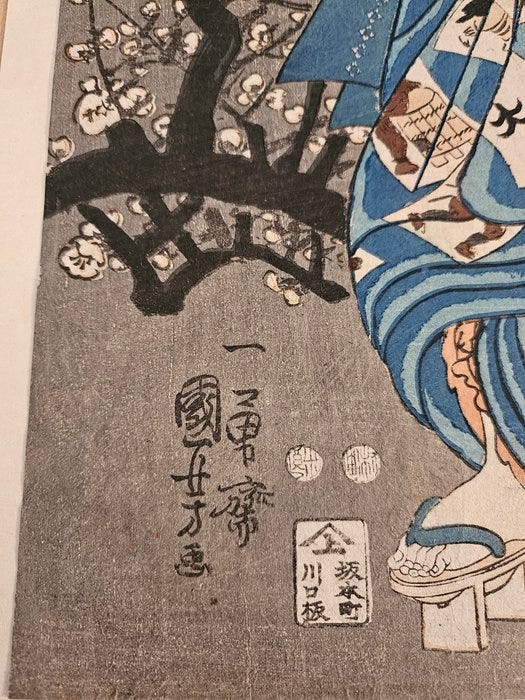 一勇齋
國芳画
上
坂本町
川口板